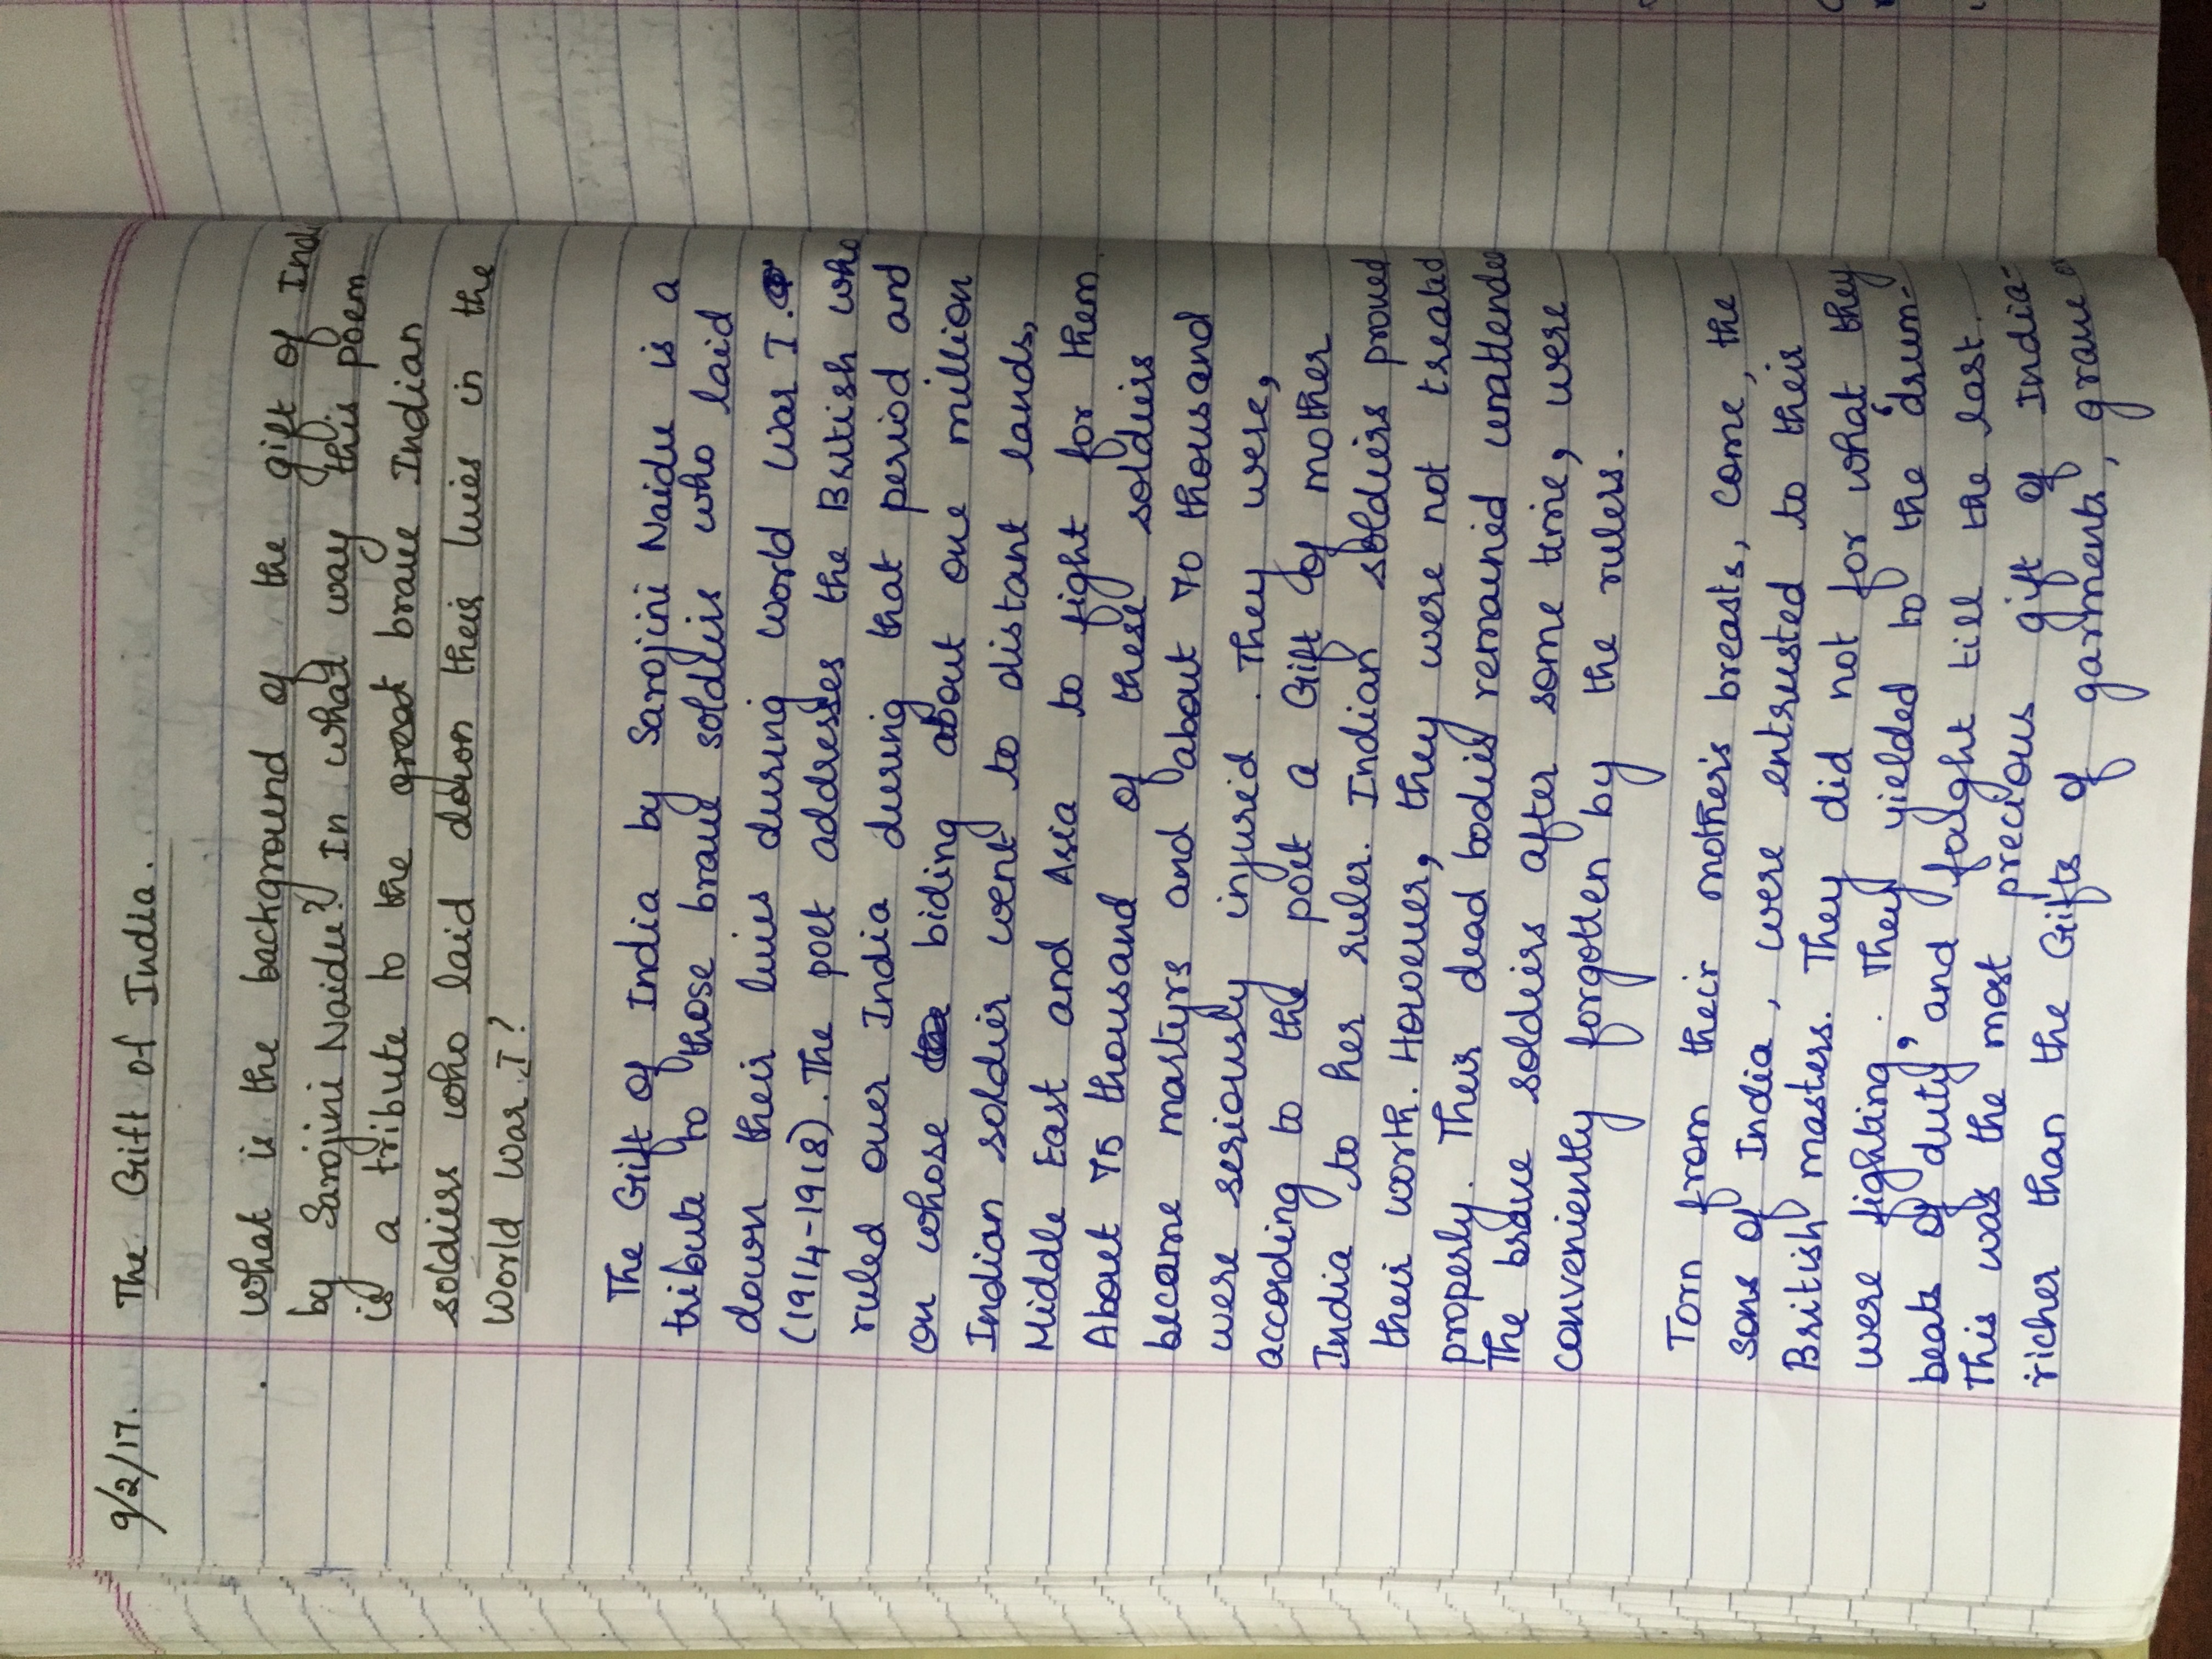 9/2/17. The Gift of India.
What is the background of the gift of Indi
by Sarojini Naidu? In what way this poem
is a tribute to the great brave Indian
soldiers who laid down their lives in the
World War I?
The Gift of India by Sarojini Naidu is a
tribute to those brave soldiers who laid
down their lives during World War I.
(1914-1918). The poet addresses the British who
ruled over India during that period and
on whose biding about one million
Indian soldier went to distant lands,
Middle East and Asia to fight for them.
About 75 thousand of these soldiers
became martyrs and about 70 thousand
were seriously injured. They were,
according to the poet a Gift of mother
India to her ruler. Indian soldiers proved
their worth. However, they were not treated
properly. Their dead bodies remained unattended
The brave soldiers after some time, were
conveniently forgotten by the rulers.
Torn from their mother's breasts, come, the
sons of India, were entrusted to their
British masters. They did not for what they
were fighting. They yielded to the 'drum-
beats of duty' and faught till the last.
This was the most precious gift of India-
richer than the Gifts of garments, grave or